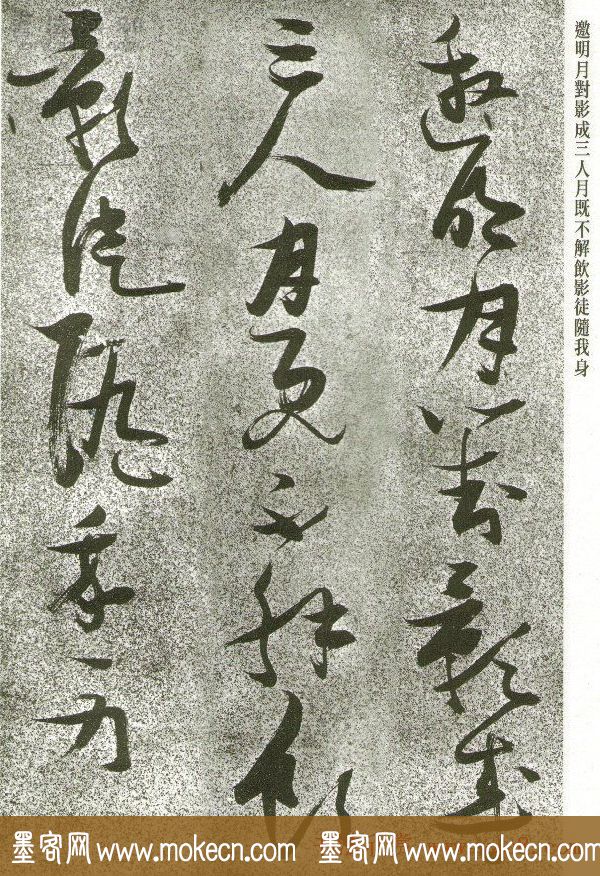 邀明月對影成三人月既不解飲影徒隨我身
邀明月對影成
三人月既不解飲
影徒隨我身
墨客网 www.mokecn.com 墨客网 www.mokecn.com